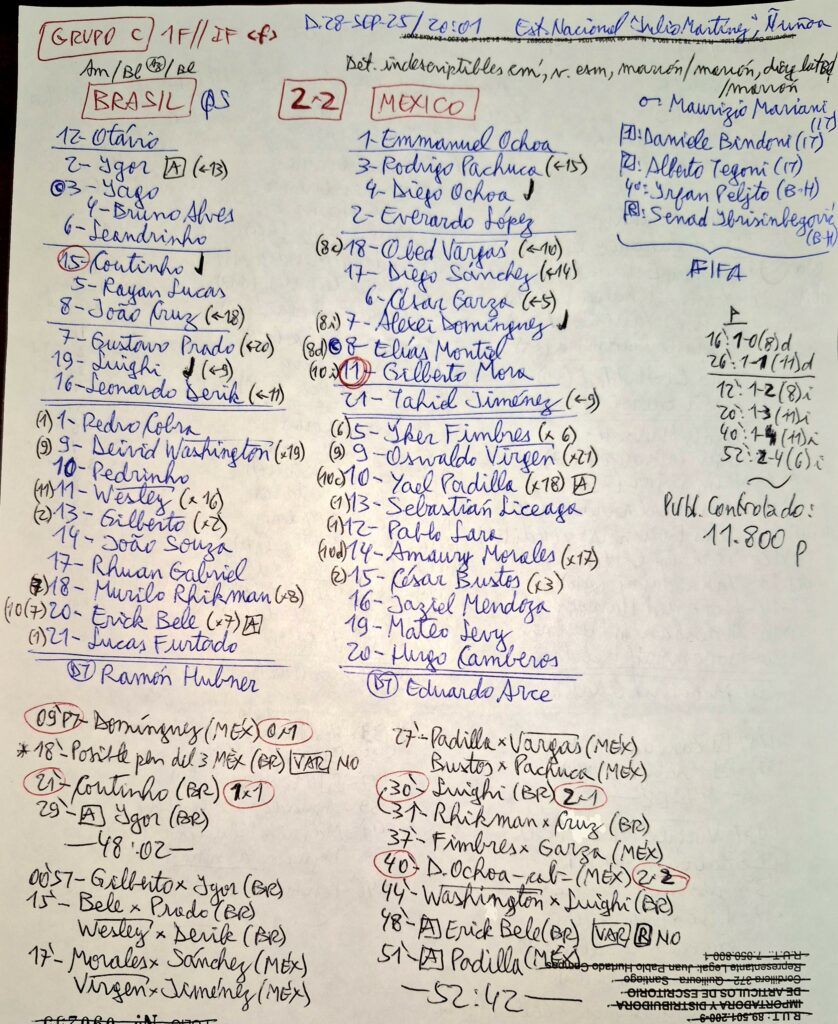 GRUPO C 1F//IF <f> D.28-SEP-25/20:01 Est. Nacional "Julio Martínez", Ñuñoa
Am/Bl /Bl
Det. indescriptibles em', v. esm, marrón/marrón,
/marrón
BRASIL QS 2-2 MEXICO
12- Otávio
2- Ygor A (←13)
©3- Yago
4- Bruno Alves
6- Leandrinho
15- Coutinho ↓
5- Rayan Lucas
8- João Cruz (←18)
7- Gustavo Prado (←20)
19- Luighi ↓ (←9)
16- Leonardo Derik (←11)
(1) 1- Pedro Cobra
(9) 9- Deivid Washington (x19)
10- Pedrinho
(11) 11- Wesley (x16)
(2) 13- Gilberto (x2)
14- João Souza
17- Rhuan Gabriel
18- Murilo Rhikman (x8)
(10(7) 20- Erick Bele (x7) A
(1) 21- Lucas Furtado
DT Ramón Hubner
1- Emmanuel Ochoa
3- Rodrigo Pachuca (←15)
4- Diego Ochoa ↓
2- Everardo López
(8c) 18- Obed Vargas (←10)
17- Diego Sánchez (←14)
6- César Garza (←5)
(8i) 7- Alexei Domínguez ↓
(8d) ©8- Elías Montiel
(10i) 11- Gilberto Mora
21- Tahid Jiménez (←9)
(6) 5- Yker Fimbres (x6)
(9) 9- Oswaldo Virgen (x21)
(10c) 10- Yael Padilla (x18) A
(1) 13- Sebastián Liceaga
(1) 12- Pablo Lara
(10d) 14- Amaury Morales (x17)
(2) 15- César Bustos (x3)
16- Jaziel Mendoza
19- Mateo Levy
20- Hugo Camberos
DT Eduardo Arce
Maurizio Mariani
(IT)
1: Daniele Bindoni (IT)
2: Alberto Tegoni (IT)
4º: Irfan Peljto (B-H)
R: Senad Ibrisinbegović
(B-H)
FIFA
P
16': 1-0 (8) d
26': 1-1 (11) d
12': 1-2 (8) i
20': 1-3 (11) i
40': 1-4 (11) i
52': 2-4 (6) i
Públ. Controlado:
11.800 p
09'PT- Domínguez (MÉX) 0x1
*18'- Posible pen del 3 MÉX (BR) VAR NO
21'- Coutinho (BR) 1x1
29'- A Ygor (BR)
—48:02—
00'ST- Gilberto x Ygor (BR)
15'- Bele x Prado (BR)
Wesley x Derik (BR)
17'- Morales x Sánchez (MÉX)
Virgen x Jiménez (MÉX)
27'- Padilla x Vargas (MÉX)
Bustos x Pachuca (MÉX)
30'- Luighi (BR) 2x1
31'- Rhikman x Cruz (BR)
37'- Fimbres x Garza (MÉX)
40'- D. Ochoa -cab- (MÉX) 2x2
44'- Washington x Luighi (BR)
48'- A Erick Bele (BR) VAR R NO
51'- A Padilla (MÉX)
—52:42—
R.U.T.: 7.050.800-1
Representante Legal: Juan Pablo Hurtado Campos
Cordillera 372 - Quilicura - Santiago
DE ARTICULOS DE ESCRITORIO
IMPORTADORA Y DISTRIBUIDORA
R.U.T.: 89.501.200-9